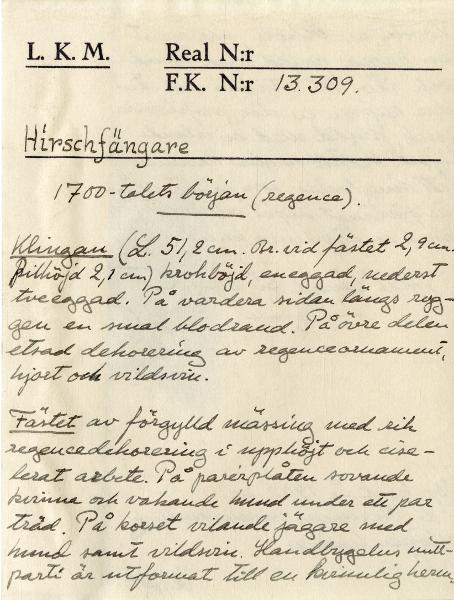 L. K. M. Real N:r
F.K. N:r 13.309.
Hirschfängare
1700-talets början (regence).
Klingan (L. 51,2 cm. Br. vid fästet 2,9 cm.
Pilhöjd 2,1 cm) krokböjd, eneggad, nederst
tveeggad. På vardera sidan längs ryg-
gen en smal blodrand. På övre delen
etsad dekorering av regenceornament,
hjort och vildsvin.
Fästet av förgylld mässing med rik
regencedekorering i upphöjt och cise-
lerat arbete. På parérplåten sovande
kvinna och vakande hund under ett par
träd. På korset vilande jägare med
hund samt vildsvin. Handbygelns mitt-
parti är utformat till en kvinnlig herm,